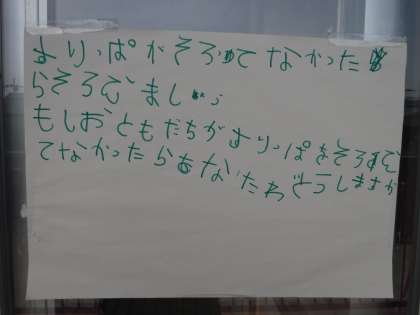 すりっぱがそろってなかった
らそろえましょう
もしおともだちがすりっぱをそろえ
てなかったらあなたわどうしますか